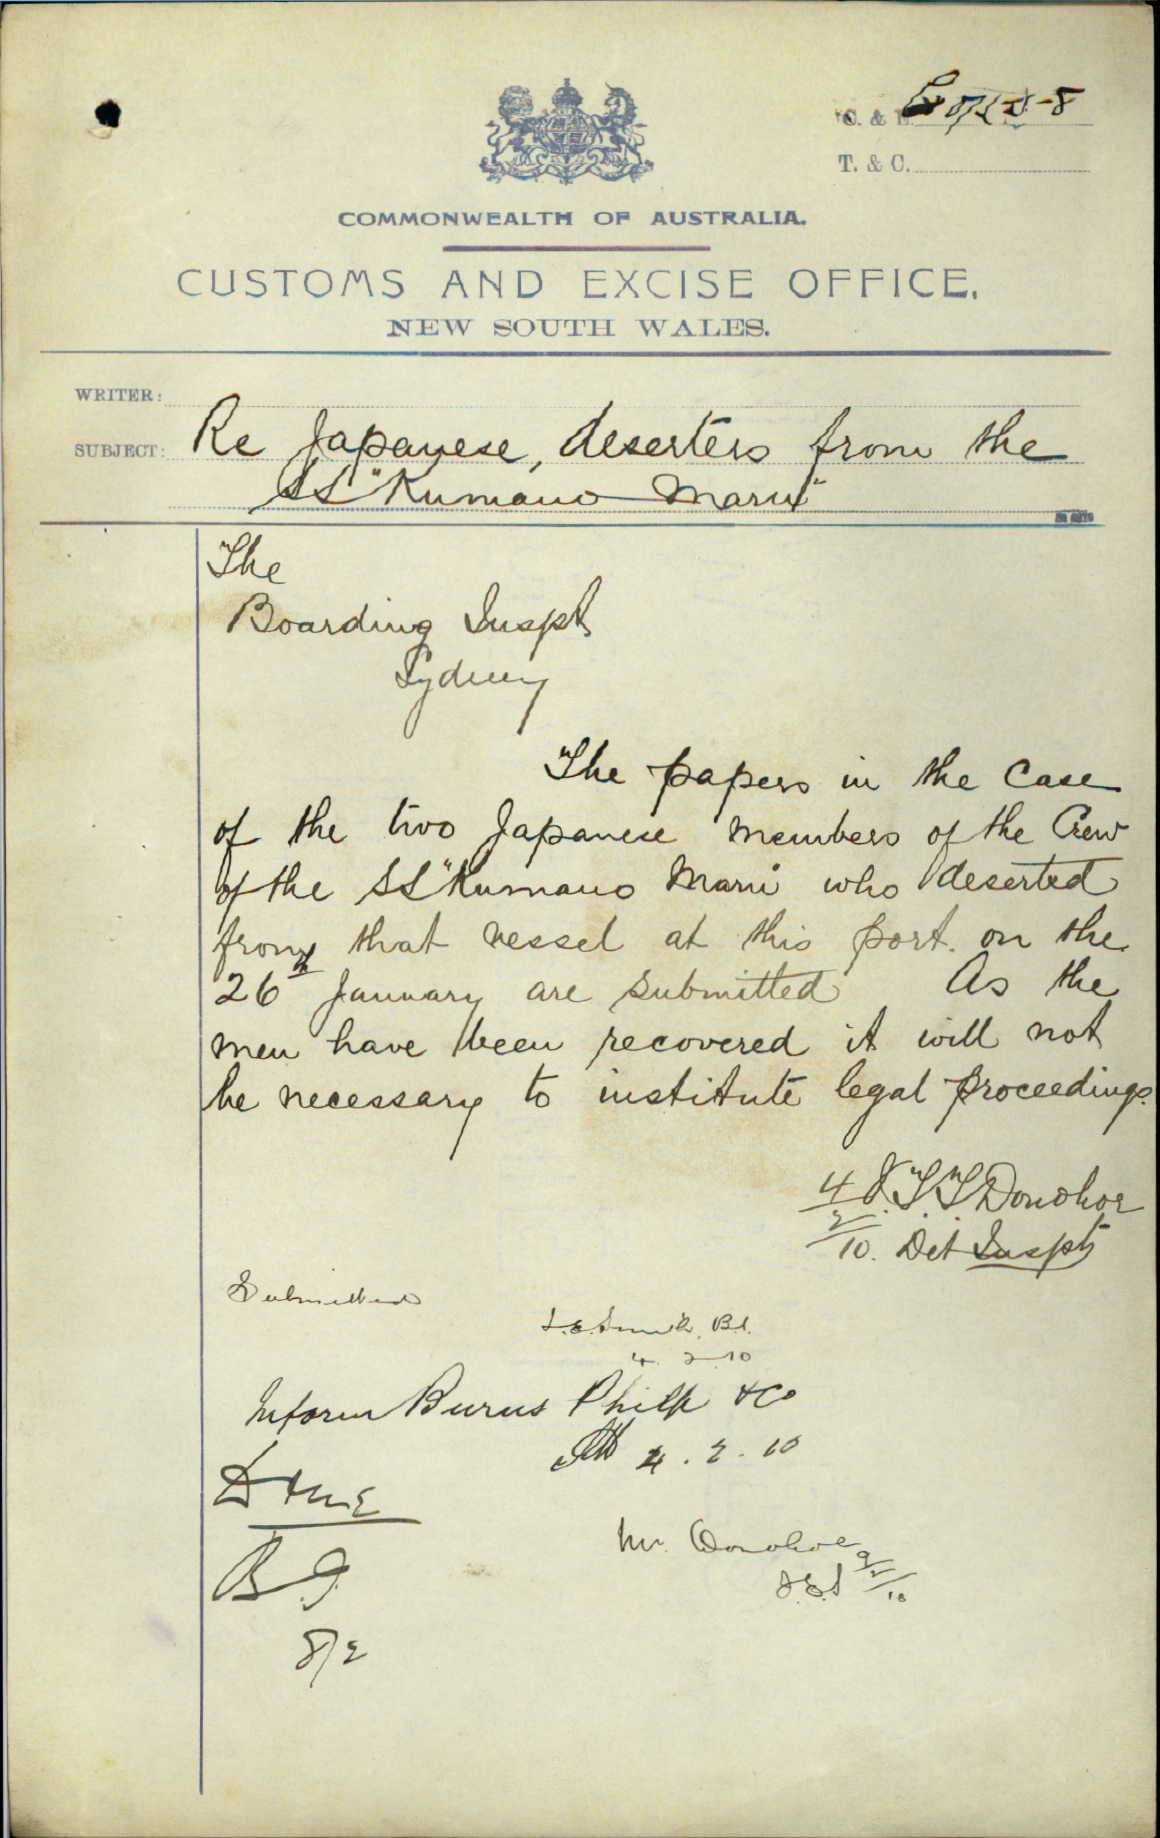 C. & E.
T. & C.
COMMONWEALTH OF AUSTRALIA.
CUSTOMS AND EXCISE OFFICE,
NEW SOUTH WALES.
WRITER:
SUBJECT: Re Japanese, deserters from the
SS "Kumano Maru"
The
Boarding Inspt
Sydney
The papers in the Case
of the two Japanese members of the Crew
of the SS "Kumano Maru" who deserted
from that vessel at this port on the
26th January are submitted As the
men have been recovered it will not
be necessary to institute legal proceedings.
4/2/10. J.T.T Donohoe
Det Inspt
Submitted
B.I.
4. 2. 10
Inform Burns Philp & Co
4. 2. 10
Done
B.I.
8/2
Mr. Donohoe
9/2/10